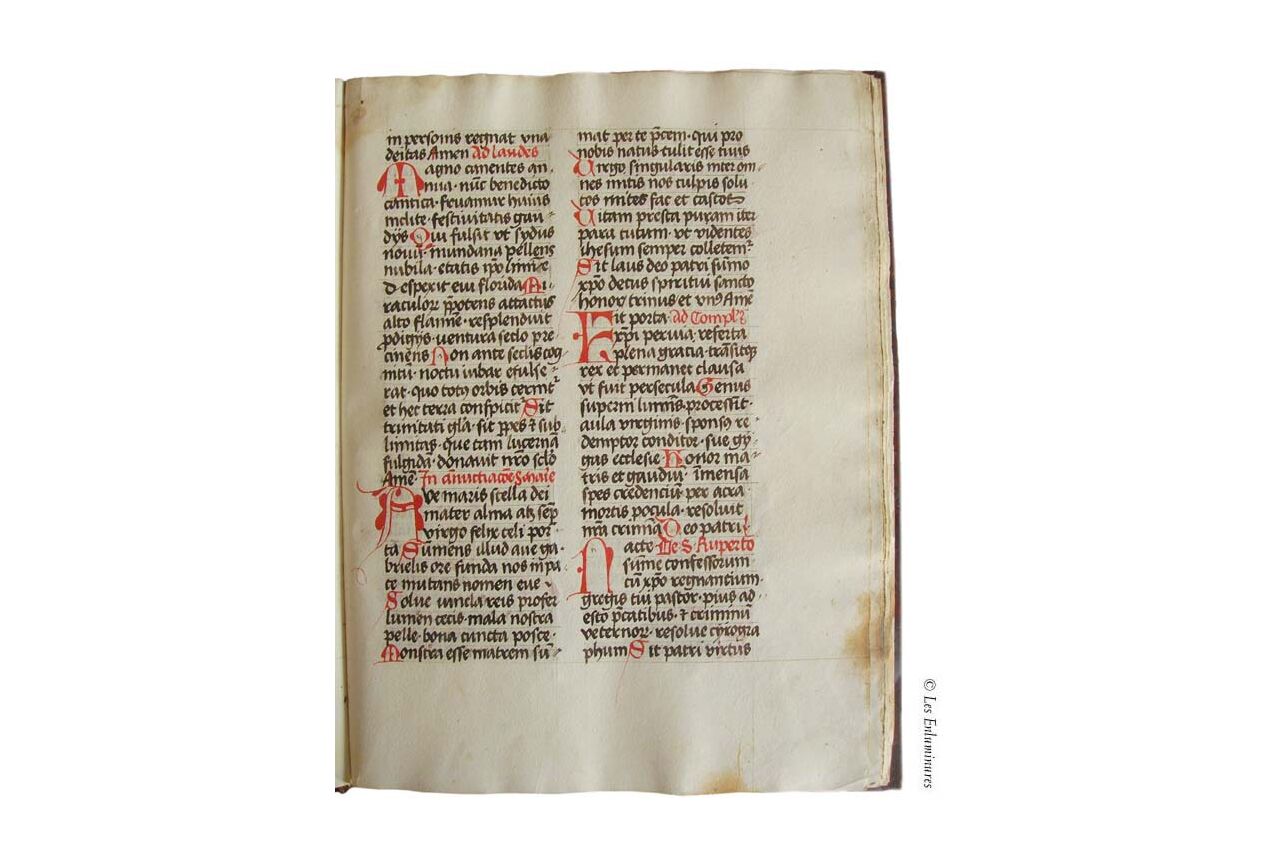 in personis regnat vna
deitas Amen Ad laudes
Magno canentes an
nua· nūc benedicto
cantica· fruamur huius
inclite· festiuitatis gau
dijs Qui fulsit vt sydus
nouū· mundana pellens
nubila· etatis
florida Mi
raculorꝝ p̄potens attactus
alto flamīe· resplenduit
ꝓdigijs· ventura seclo pre
cinens Non ante seclis cog
nitū· noctu iubar effulse
rat· quo totꝰ orbis cernit᷑
et hec terra conspicit᷑ Sit
trinitati gl̄a· sit ꝑpes ⁊ sub
limitas· que tam lucernā
fulgidā· donauit nr̄o sclo
Amē· In annūtiacōe S marie
Aue maris stella dei
mater alma atqꝫ semꝑ
virgo felix celi por
ta Sumens illud aue ga
brielis ore funda nos in pa
ce mutans nomen eue
Solue vincla reis profer
lumen cecis· mala nostra
pelle· bona cuncta posce·
Monstra esse matrem sū
mat per te p̄cem· qui pro
nobis natus tulit esse tuus
Virgo singularis inter om
nes mitis nos culpis solu
tos mites fac et castos
Vitam presta puram iter
para tutum· vt videntes
ihesum semper colletem᷑
Sit laus deo patri sūmo
xp̄o decus spiritui sancto
honor trinus et vnꝰ Amē
Fit porta· ad Compl᷑
xp̄i peruia· referta
plena gracia· trāsitqꝫ
rex et permanet clausa
vt fuit per secula Genus
superni luminis· processit·
aula virginis· sponsꝰ re
demptor conditor· sue gy
gas ecclesie Honor ma
tris et gaudiū· īmensa
spes credenciū· per atra
mortis pocula· resoluit
nr̄a crimina Deo patri
De S Ruperto
sūme confessorum
cū xp̄o regnantium·
gregis tui pastor· pius ad
esto p̄catibus· ⁊ criminū
veternor· resolue cyrogra
phum Sit patri virtus
© Les Enluminures